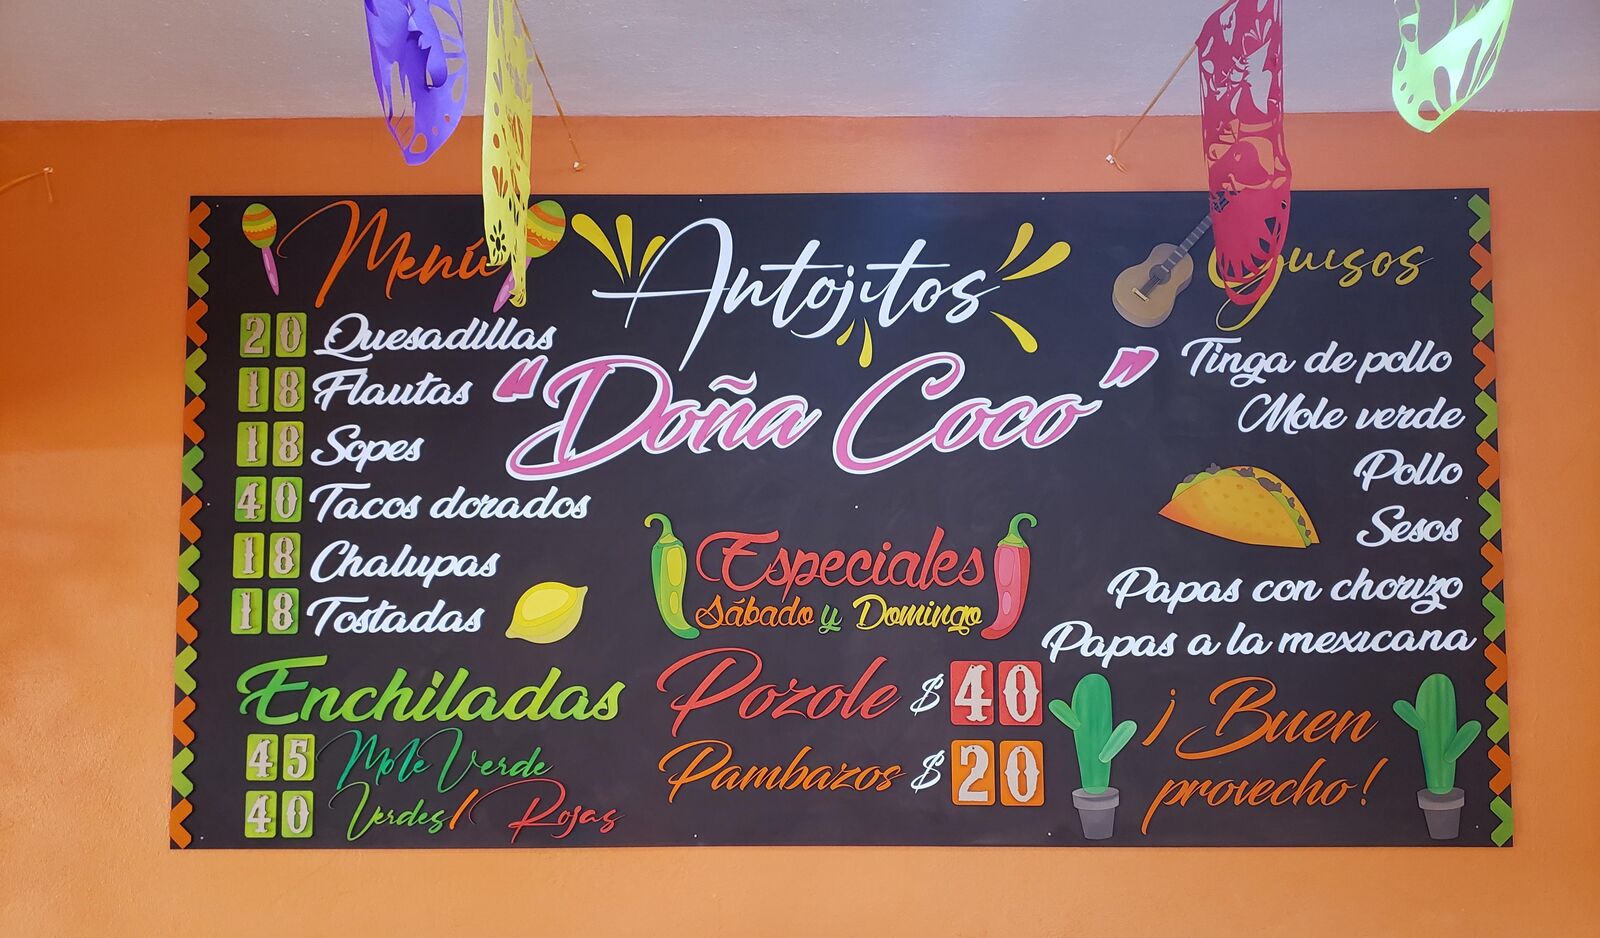 Menú
20 Quesadillas
18 Flautas
18 Sopes
40 Tacos dorados
18 Chalupas
18 Tostadas
Enchiladas
45 Mole Verde
40 Verdes/Rojas
Antojitos
"Doña Coco"
Especiales
Sábado y Domingo
Pozole $40
Pambazos $20
Guisos
Tinga de pollo
Mole verde
Pollo
Sesos
Papas con chorizo
Papas a la mexicana
¡Buen
provecho!